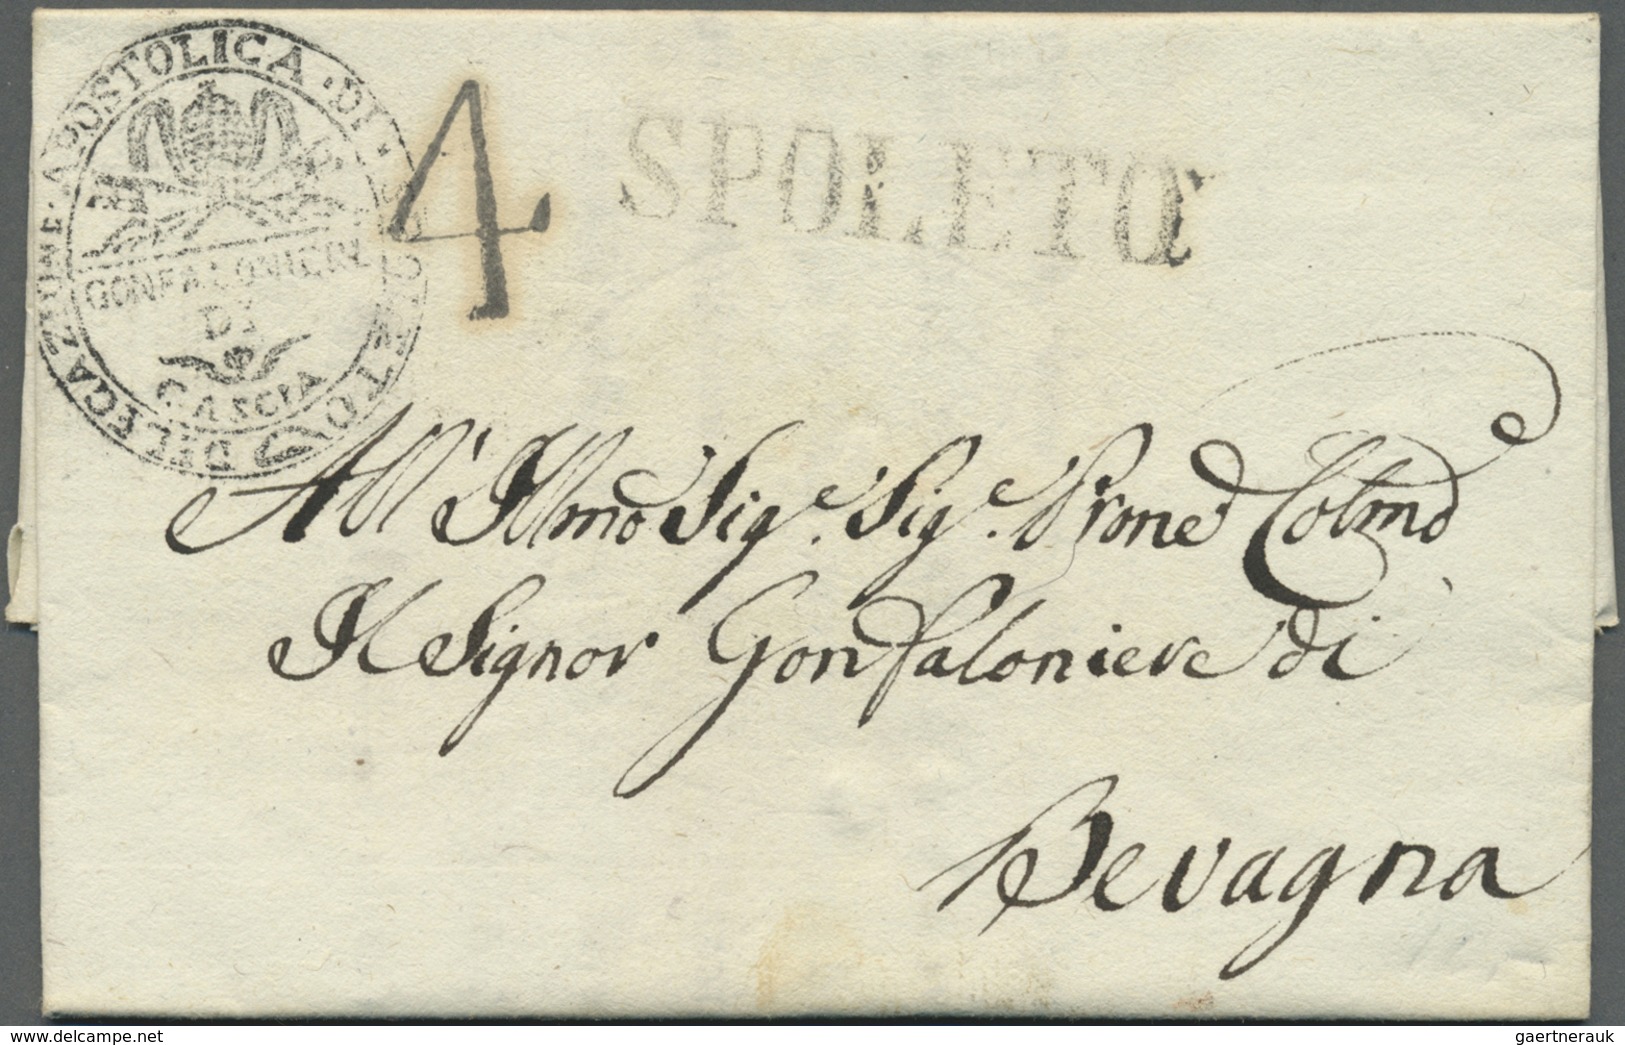 DELEGAZIONE · APOSTOLICA · DI · SPOLETO
GONFALONIERE
DI
CASCIA
4
SPOLETO
All' Illmo Sigr. Sigr. Prone Colmo
Il Signor Gonfaloniere di
Bevagna
www.delcampe.net
gaertnerauk